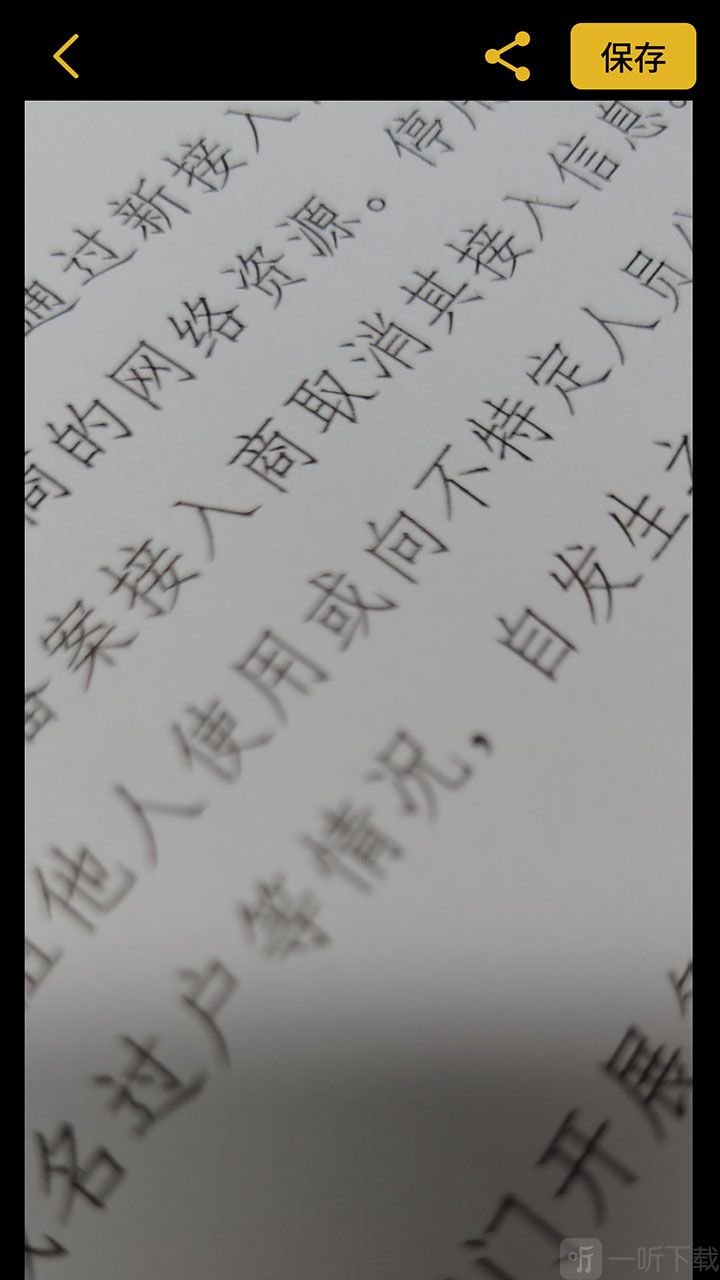 保存
通过新接入
停用
商的网络资源。
备案接入商取消其接入信息。
他人使用或向不特定人员
名过户等情况，自发生之
门开展
一听下载